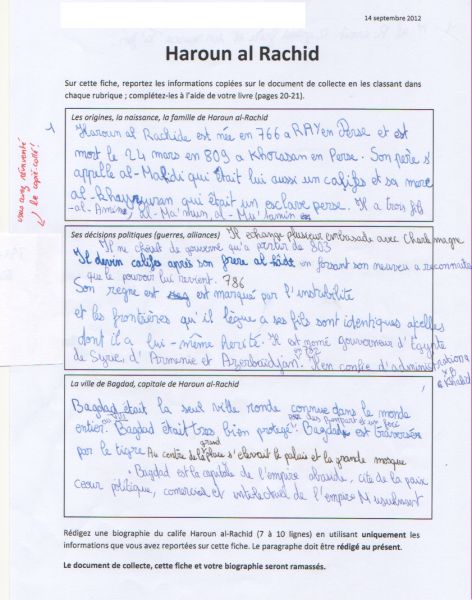 14 septembre 2012
Haroun al Rachid
Sur cette fiche, reportez les informations copiées sur le document de collecte en les classant dans
chaque rubrique ; complétez-les à l'aide de votre livre (pages 20-21).
vous avez réinventé
le copié-collé !
Les origines, la naissance, la famille de Haroun al-Rachid
Haroun al Rachide est née en 766 a RAY en Perse et est
mort le 24 mars en 809 a Khorasan en Perse. Son père s'
appelle al-Mahdi qui était lui aussi un califs et sa mere
al-khayzuran qui était un esclave perse. Il a trois fils
-al-Amine, al-Ma'mun, al-Mu'tamin
Ses décisions politiques (guerres, alliances) Il echange plusieur embasade avec Charlemagne
Il ne choisit de gouverné qu'a partir de 803
Il devin califs après son frere al-hâdi en forsant son neuveu a reconnaitre
que le pouvoir lui revient. 786
Son regne est marqué par l'instabilité
et les frontières qu'il lègue a ses fils sont identiques a celles
dont il a lui-même herité. Il est nomé gouverneur d'Egypte
de Syrie, d'Armenie et Azerbaïdjan. Il en confie d'administration a
Khalid
La ville de Bagdad, capitale de Haroun al-Rachid
Bagdad était la seul ville ronde connue dans le monde
entier. Bagdad était tres bien protegé par des rempart et un Bagdad est traversée
par le tigre. Au centre de la grand place s'elevait le palais et la grande mosque
. Bagdad est la capitale de l'empire abasside, cité de la paix
Coeur politique, comercial et intelectuel de l'empire Musulment
Rédigez une biographie du calife Haroun al-Rachid (7 à 10 lignes) en utilisant uniquement les
informations que vous avez reportées sur cette fiche. Le paragraphe doit être rédigé au présent.
Le document de collecte, cette fiche et votre biographie seront ramassés.